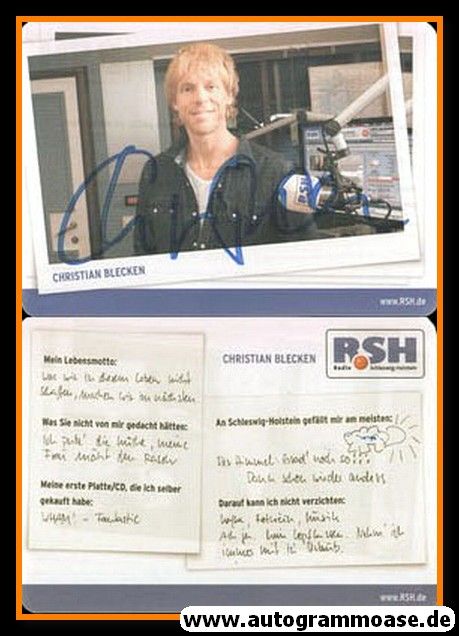 RSH
CHRISTIAN BLECKEN
www.RSH.de
CHRISTIAN BLECKEN
RSH
Radio Schleswig-Holstein
Mein Lebensmotto:
was wir in diesem Leben nicht
schaffen, machen wir im nächsten
Was Sie nicht von mir gedacht hätten:
Ich putz' die Küche, meine
Frau mäht den Rasen
Meine erste Platte/CD, die ich selber
gekauft habe:
WHAM! - Fantastic
An Schleswig-Holstein gefällt mir am meisten:
Der Himmel. Grad' noch so...
Dann schon wieder anders
Darauf kann ich nicht verzichten:
Musik
immer mit in Urlaub.
www.RSH.de
www.autogrammoase.de